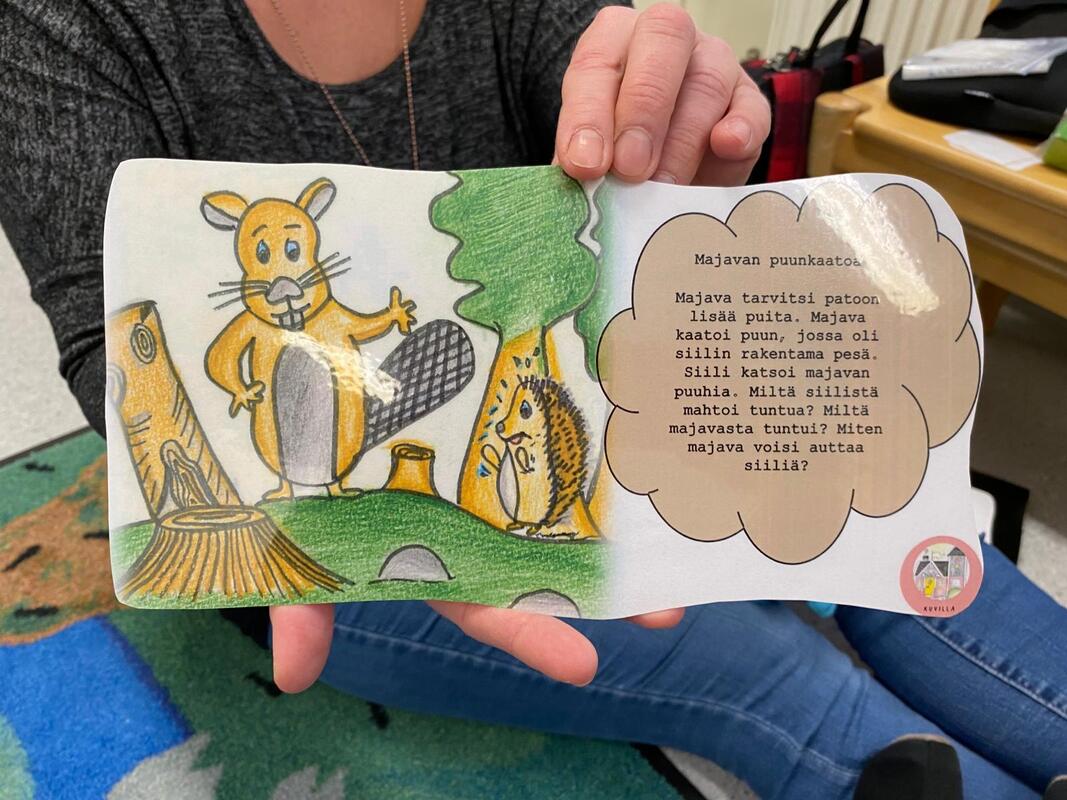 Majavan puunkaatoa
Majava tarvitsi patoon
lisää puita. Majava
kaatoi puun, jossa oli
siilin rakentama pesä.
Siili katsoi majavan
puuhia. Miltä siilistä
mahtoi tuntua? Miltä
majavasta tuntui? Miten
majava voisi auttaa
siiliä?
KUVILLA